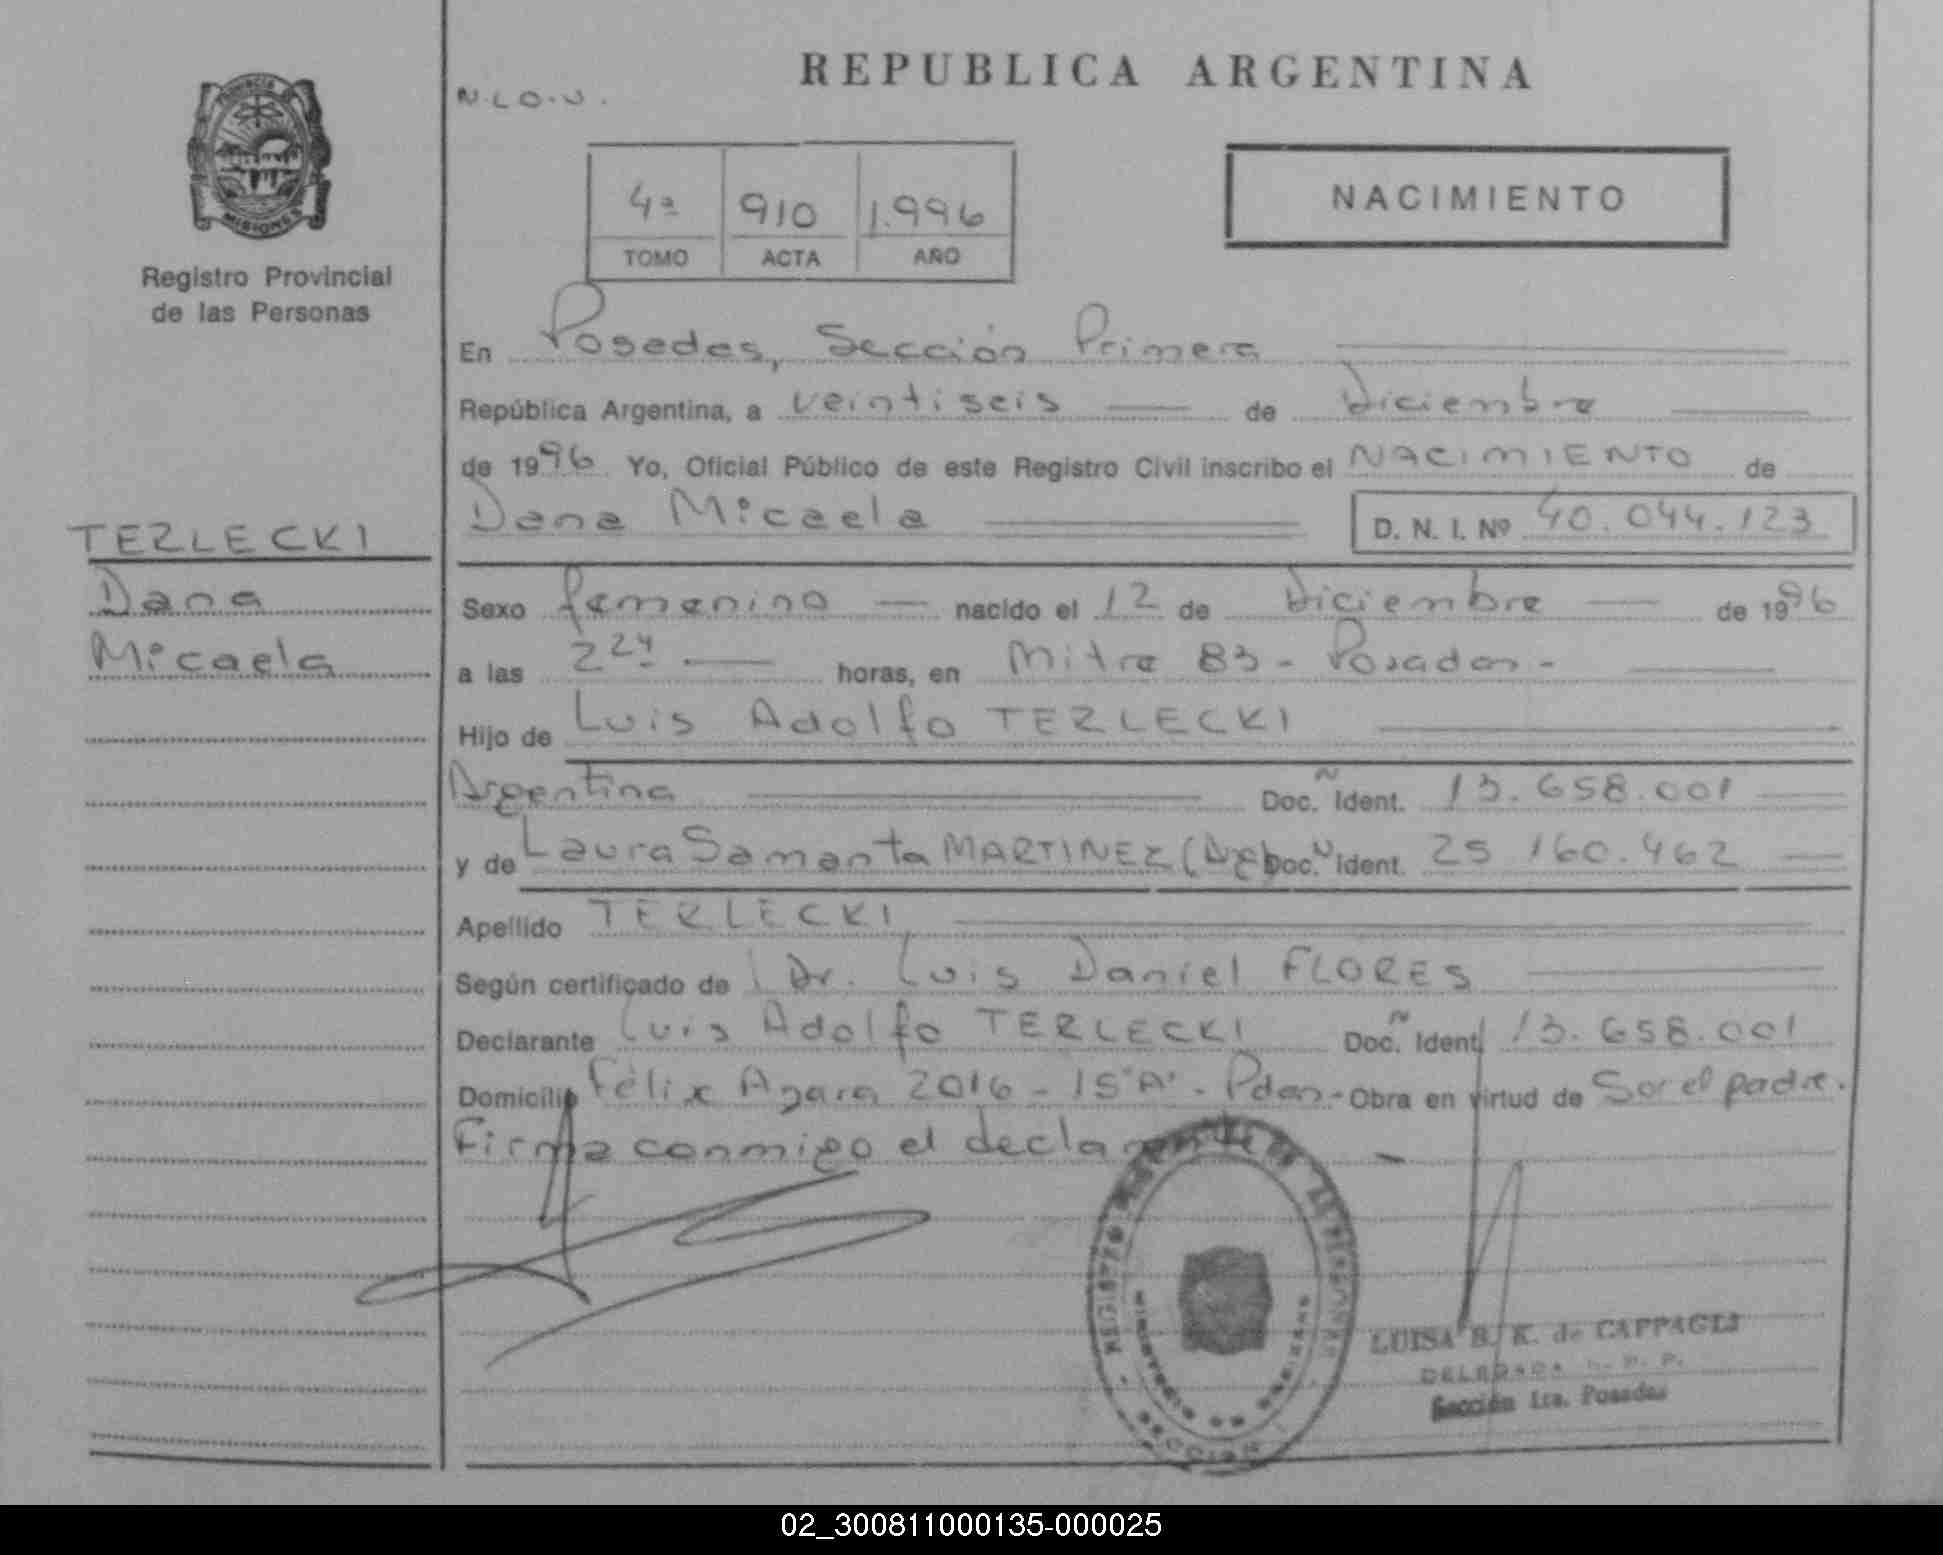 REPUBLICA ARGENTINA
N.L.O.U.
PROVINCIA
MISIONES
Registro Provincial
de las Personas
4ª 910 1.996
TOMO ACTA AÑO
NACIMIENTO
En Posadas, Sección Primera
República Argentina, a veintiseis de Diciembre
de 1996 Yo, Oficial Público de este Registro Civil inscribo el NACIMIENTO de
Dana Micaela D. N. I. Nº 40.044.123
TERLECKI
Dana
Micaela
Sexo femenino nacido el 12 de Diciembre de 1996
a las horas, en Mitre 83 - Posadas -
Hijo de Luis Adolfo TERLECKI
Argentina Doc. Ident. 13.658.001
y de Laura Samanta MARTINEZ (Arg) Doc. Ident. 25 160.462
Apellido TERLECKI
Según certificado de Dr. Luis Daniel FLORES
Declarante Luis Adolfo TERLECKI Doc. Ident. 13.658.001
Domicilio Félix Azara 2016 - 15"A" - Pdas - Obra en virtud de Ser el padre.
Firma conmigo el declarante
LUISA B. K. de CAPPAGLI
DELEGADA R. P. P.
Sección 1ra. Posadas
02_300811000135-000025